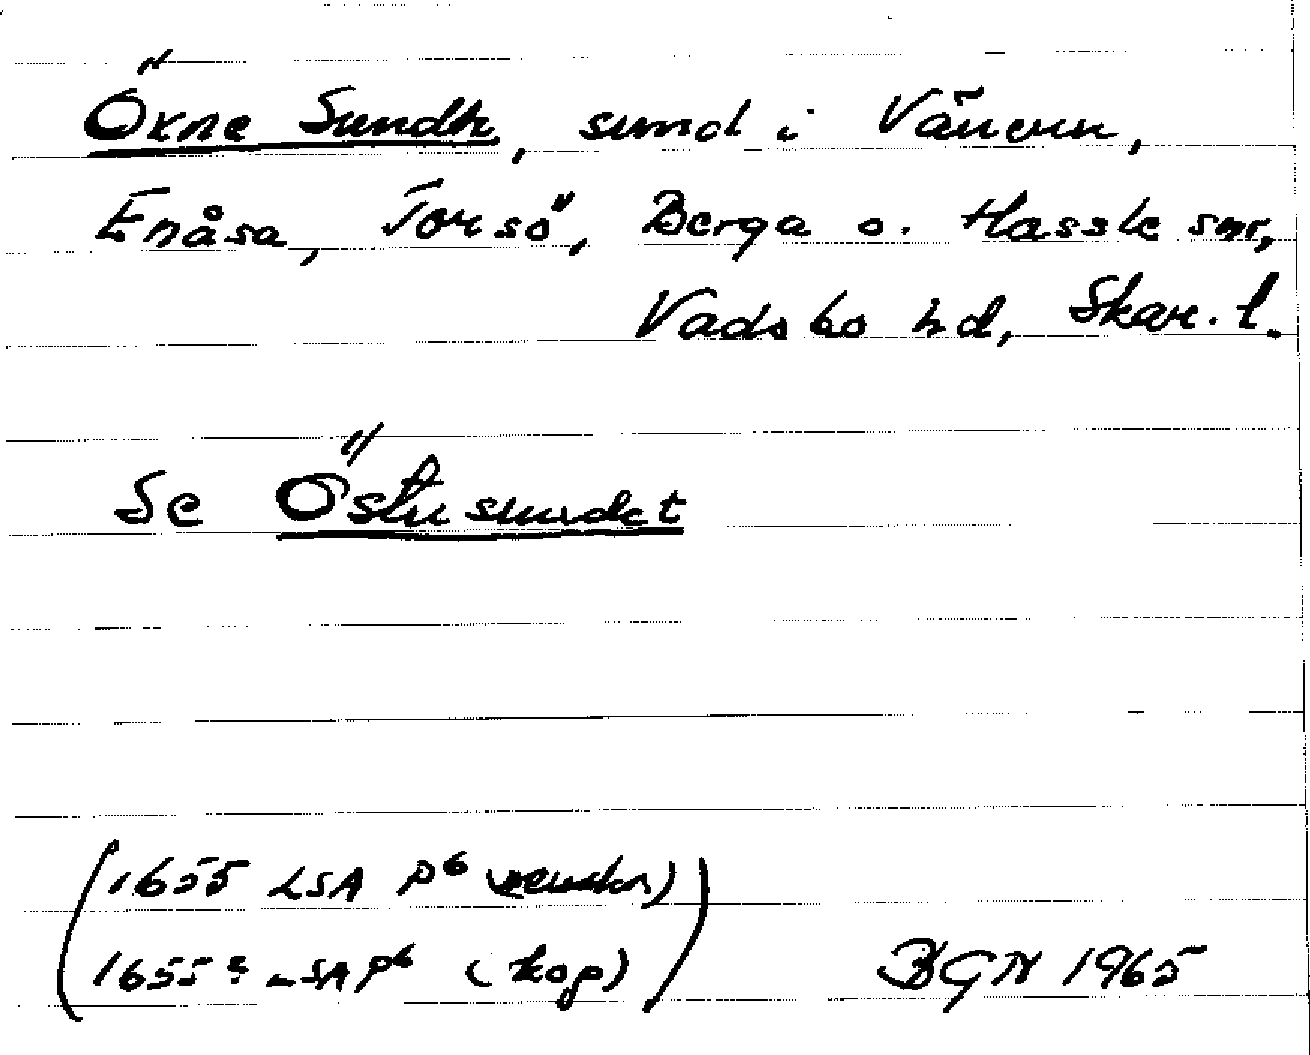 Öxne Sundh, sund i Vänern,
Enåsa, Torsö, Berga o. Hassle snr,
Vadsbo hd, Skar. l.
Se Östersundet
(1655 LSA P6
1655? LSA P6 (kop))
BGN 1965